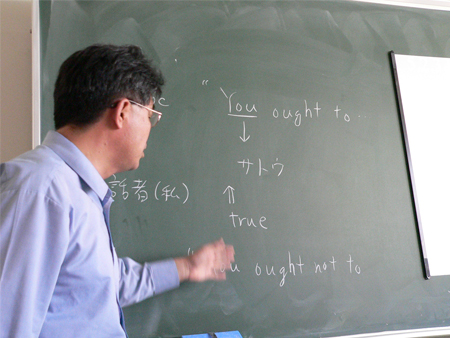 "You ought to
サトウ
話者(私)
true
ought not to